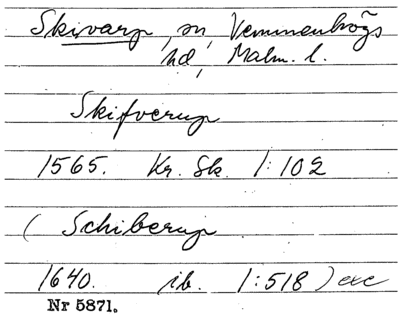 Skivarp, sn, Vemmenhögs
hd, Malm. l.
Skifverup
1565. Kr. Sk. 1:102
( Schiberup
1640. ib. 1:518 ) exc
Nr 5871.